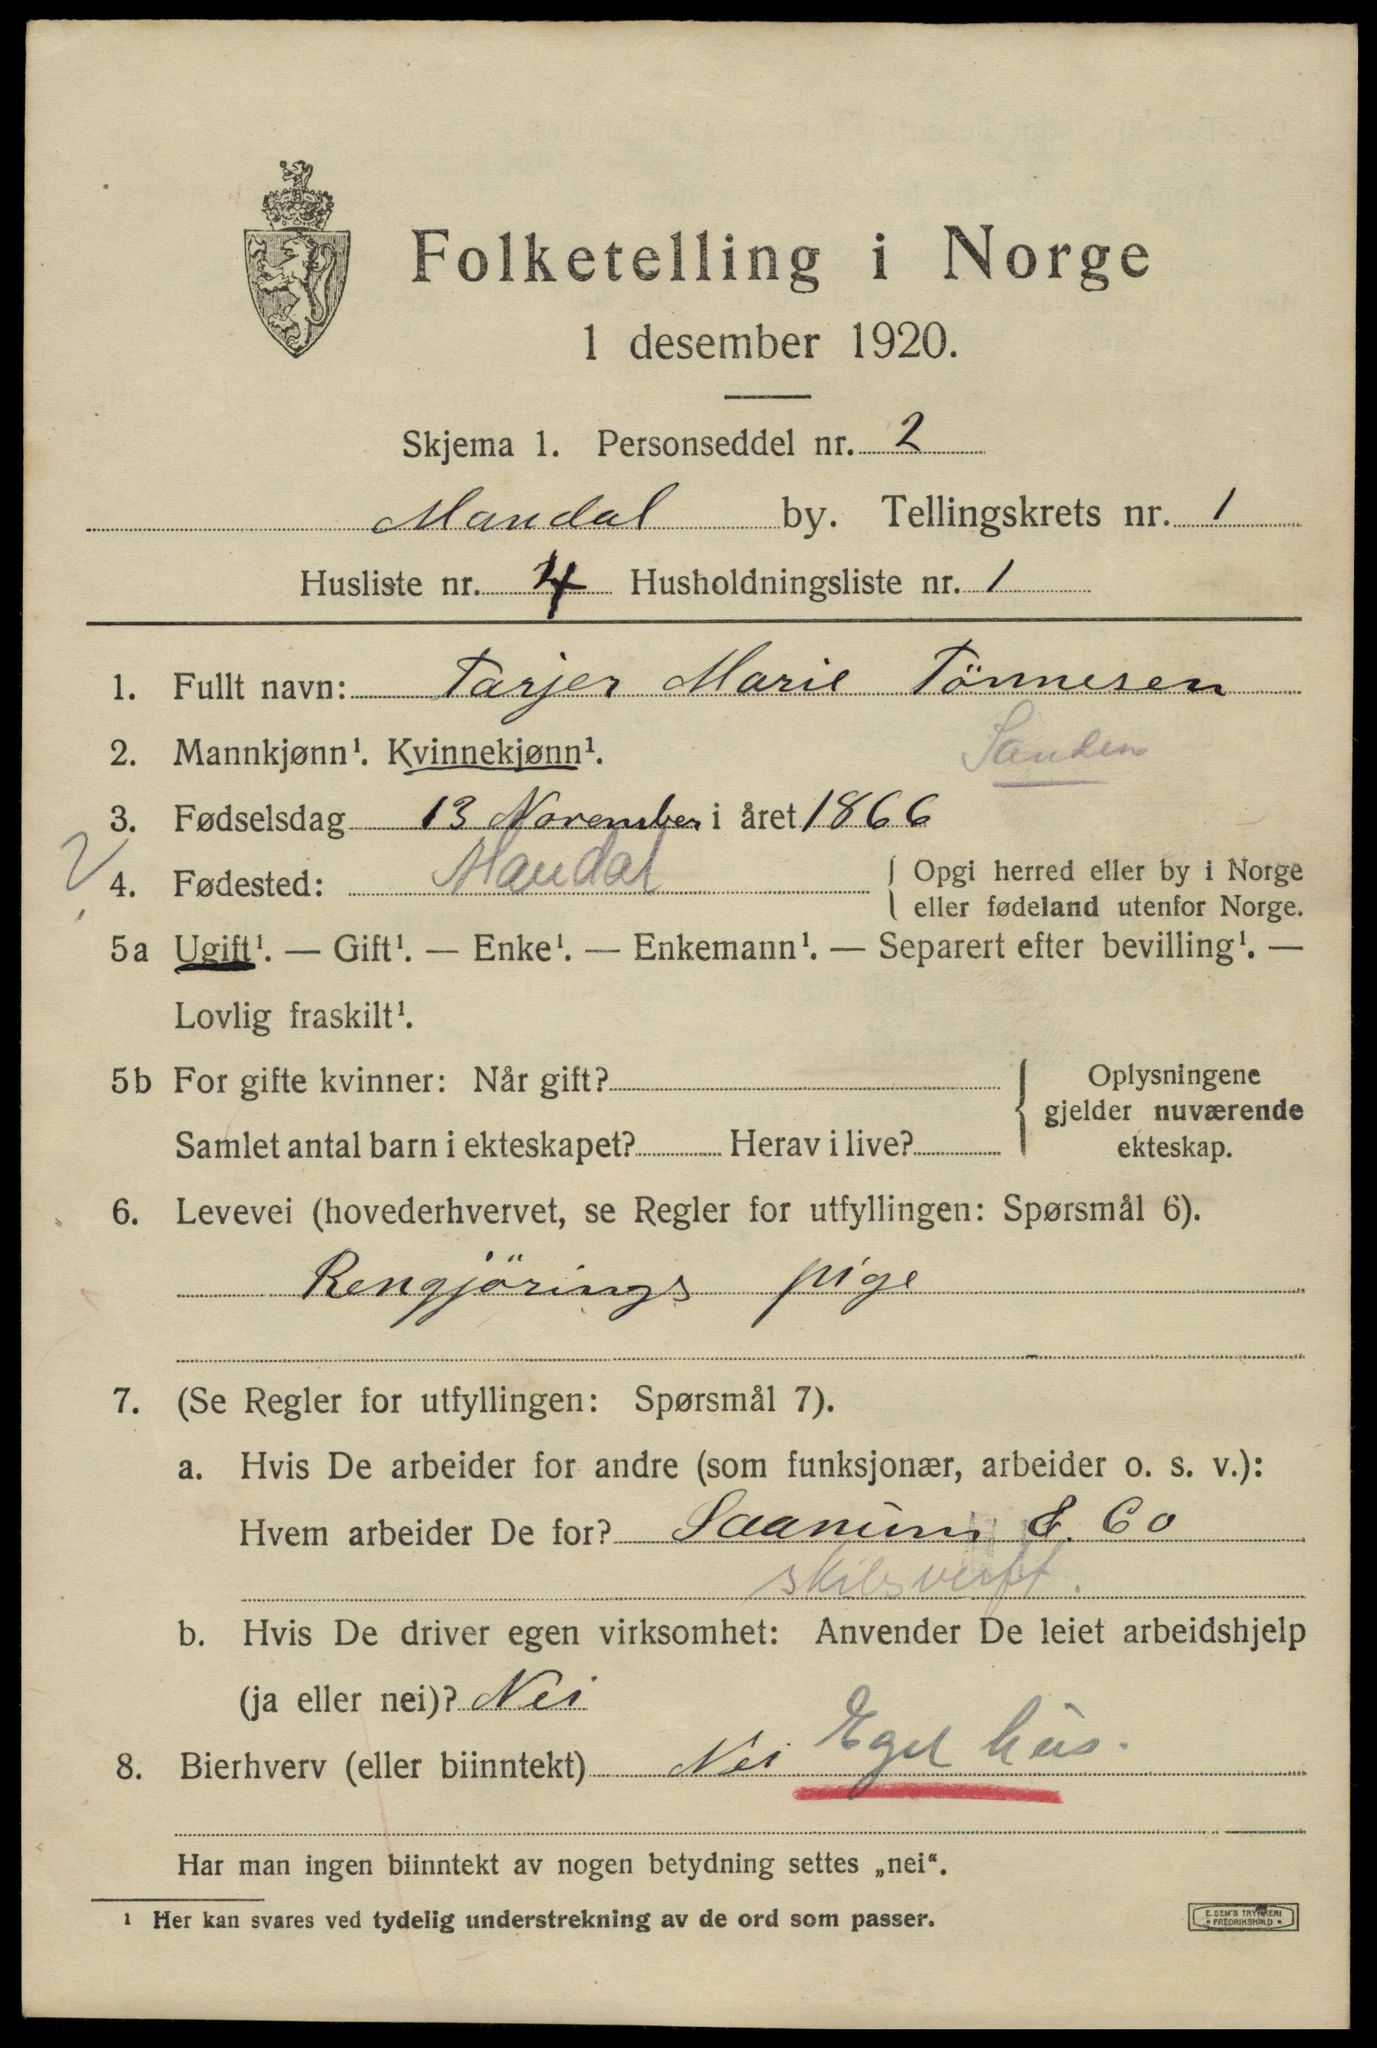 Folketelling i Norge
1 desember 1920.
Skjema 1. Personseddel nr. 2
Mandal by. Tellingskrets nr. 1
Husliste nr. 4 Husholdningsliste nr. 1
1. Fullt navn: Tarjer Marie Tönnesen
2. Mannkjønn¹. Kvinnekjønn¹.
Sanden
3. Fødselsdag 13 November i året 1866
? 4. Fødested: Mandal
{ Opgi herred eller by i Norge
eller fødeland utenfor Norge.
5a Ugift¹. — Gift¹. — Enke¹. — Enkemann¹. — Separert efter bevilling¹. —
Lovlig fraskilt¹.
5b For gifte kvinner: Når gift?
Samlet antal barn i ekteskapet? Herav i live?
{ Oplysningene
gjelder nuværende
ekteskap.
6. Levevei (hovederhvervet, se Regler for utfyllingen: Spørsmål 6).
Rengjörings pige
7. (Se Regler for utfyllingen: Spørsmål 7).
a. Hvis De arbeider for andre (som funksjonær, arbeider o. s. v.):
Hvem arbeider De for? Saanum & Co
skibsverft.
b. Hvis De driver egen virksomhet: Anvender De leiet arbeidshjelp
(ja eller nei)? Nei
8. Bierhverv (eller biinntekt) Nei Eget hus.
Har man ingen biinntekt av nogen betydning settes „nei“.
¹ Her kan svares ved tydelig understrekning av de ord som passer.
E. SEM'S TRYKKERI
FREDRIKSHALD